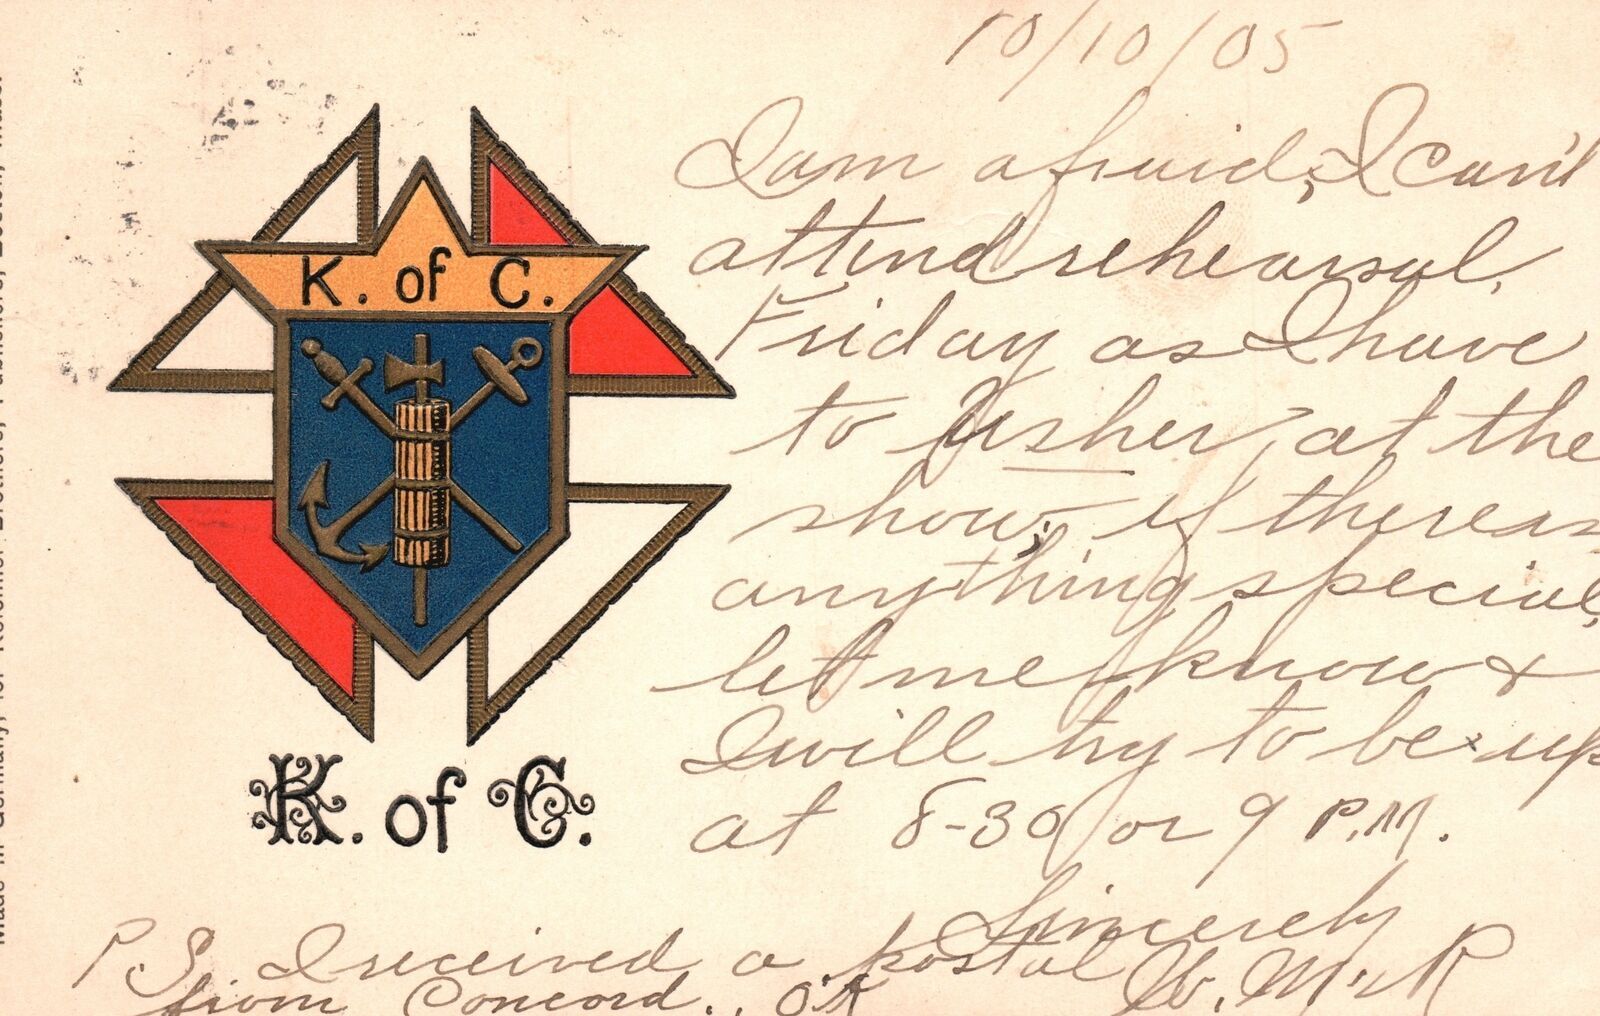 10/10/05
I am afraid, I can't
attend rehearsal,
Friday as I have
to Usher, at the
show, if there is
anything special,
let me know &
I will try to be up
at 8-30 or 9 P.M.
Sincerely
P.S. I received a postal
from Concord., O.K
K. of C.
K. of C.